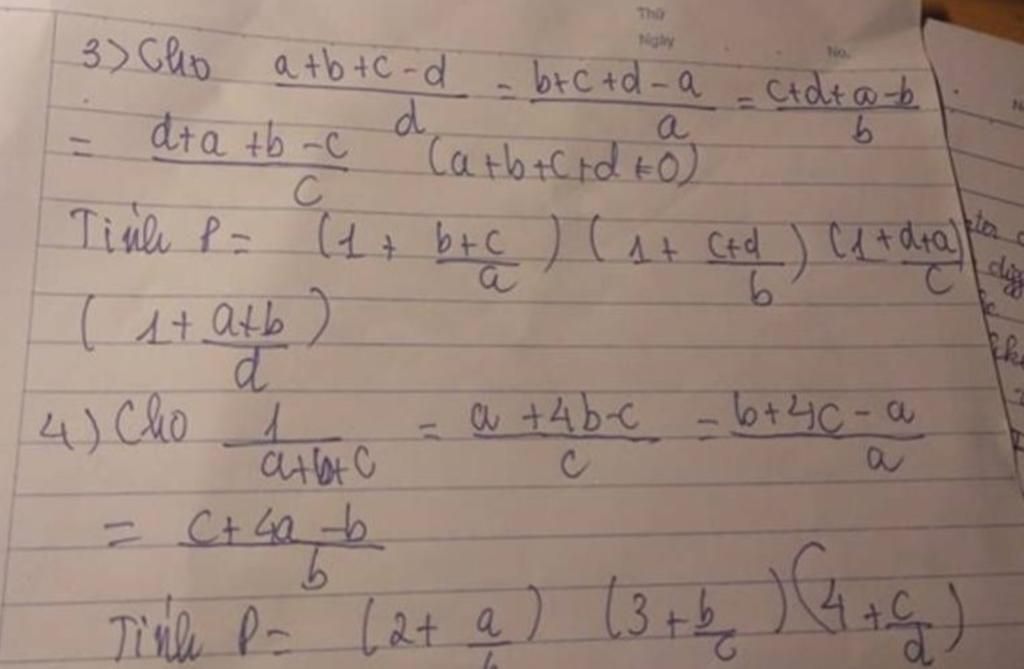 Thứ
Ngày
No.
3> Cho (a+b+c-d)/d = (b+c+d-a)/a = (c+d+a-b)/b
= (d+a+b-c)/c (a+b+c+d ≠ 0)
Tính P = (1 + (b+c)/a) (1 + (c+d)/b) (1 + (d+a)/c)
(1 + (a+b)/d)
4) Cho 1/(a+b+c) = (a+4b-c)/c = (b+4c-a)/a
= (c+4a-b)/b
Tính P = (2 + a/b) (3 + b/c) (4 + c/d)